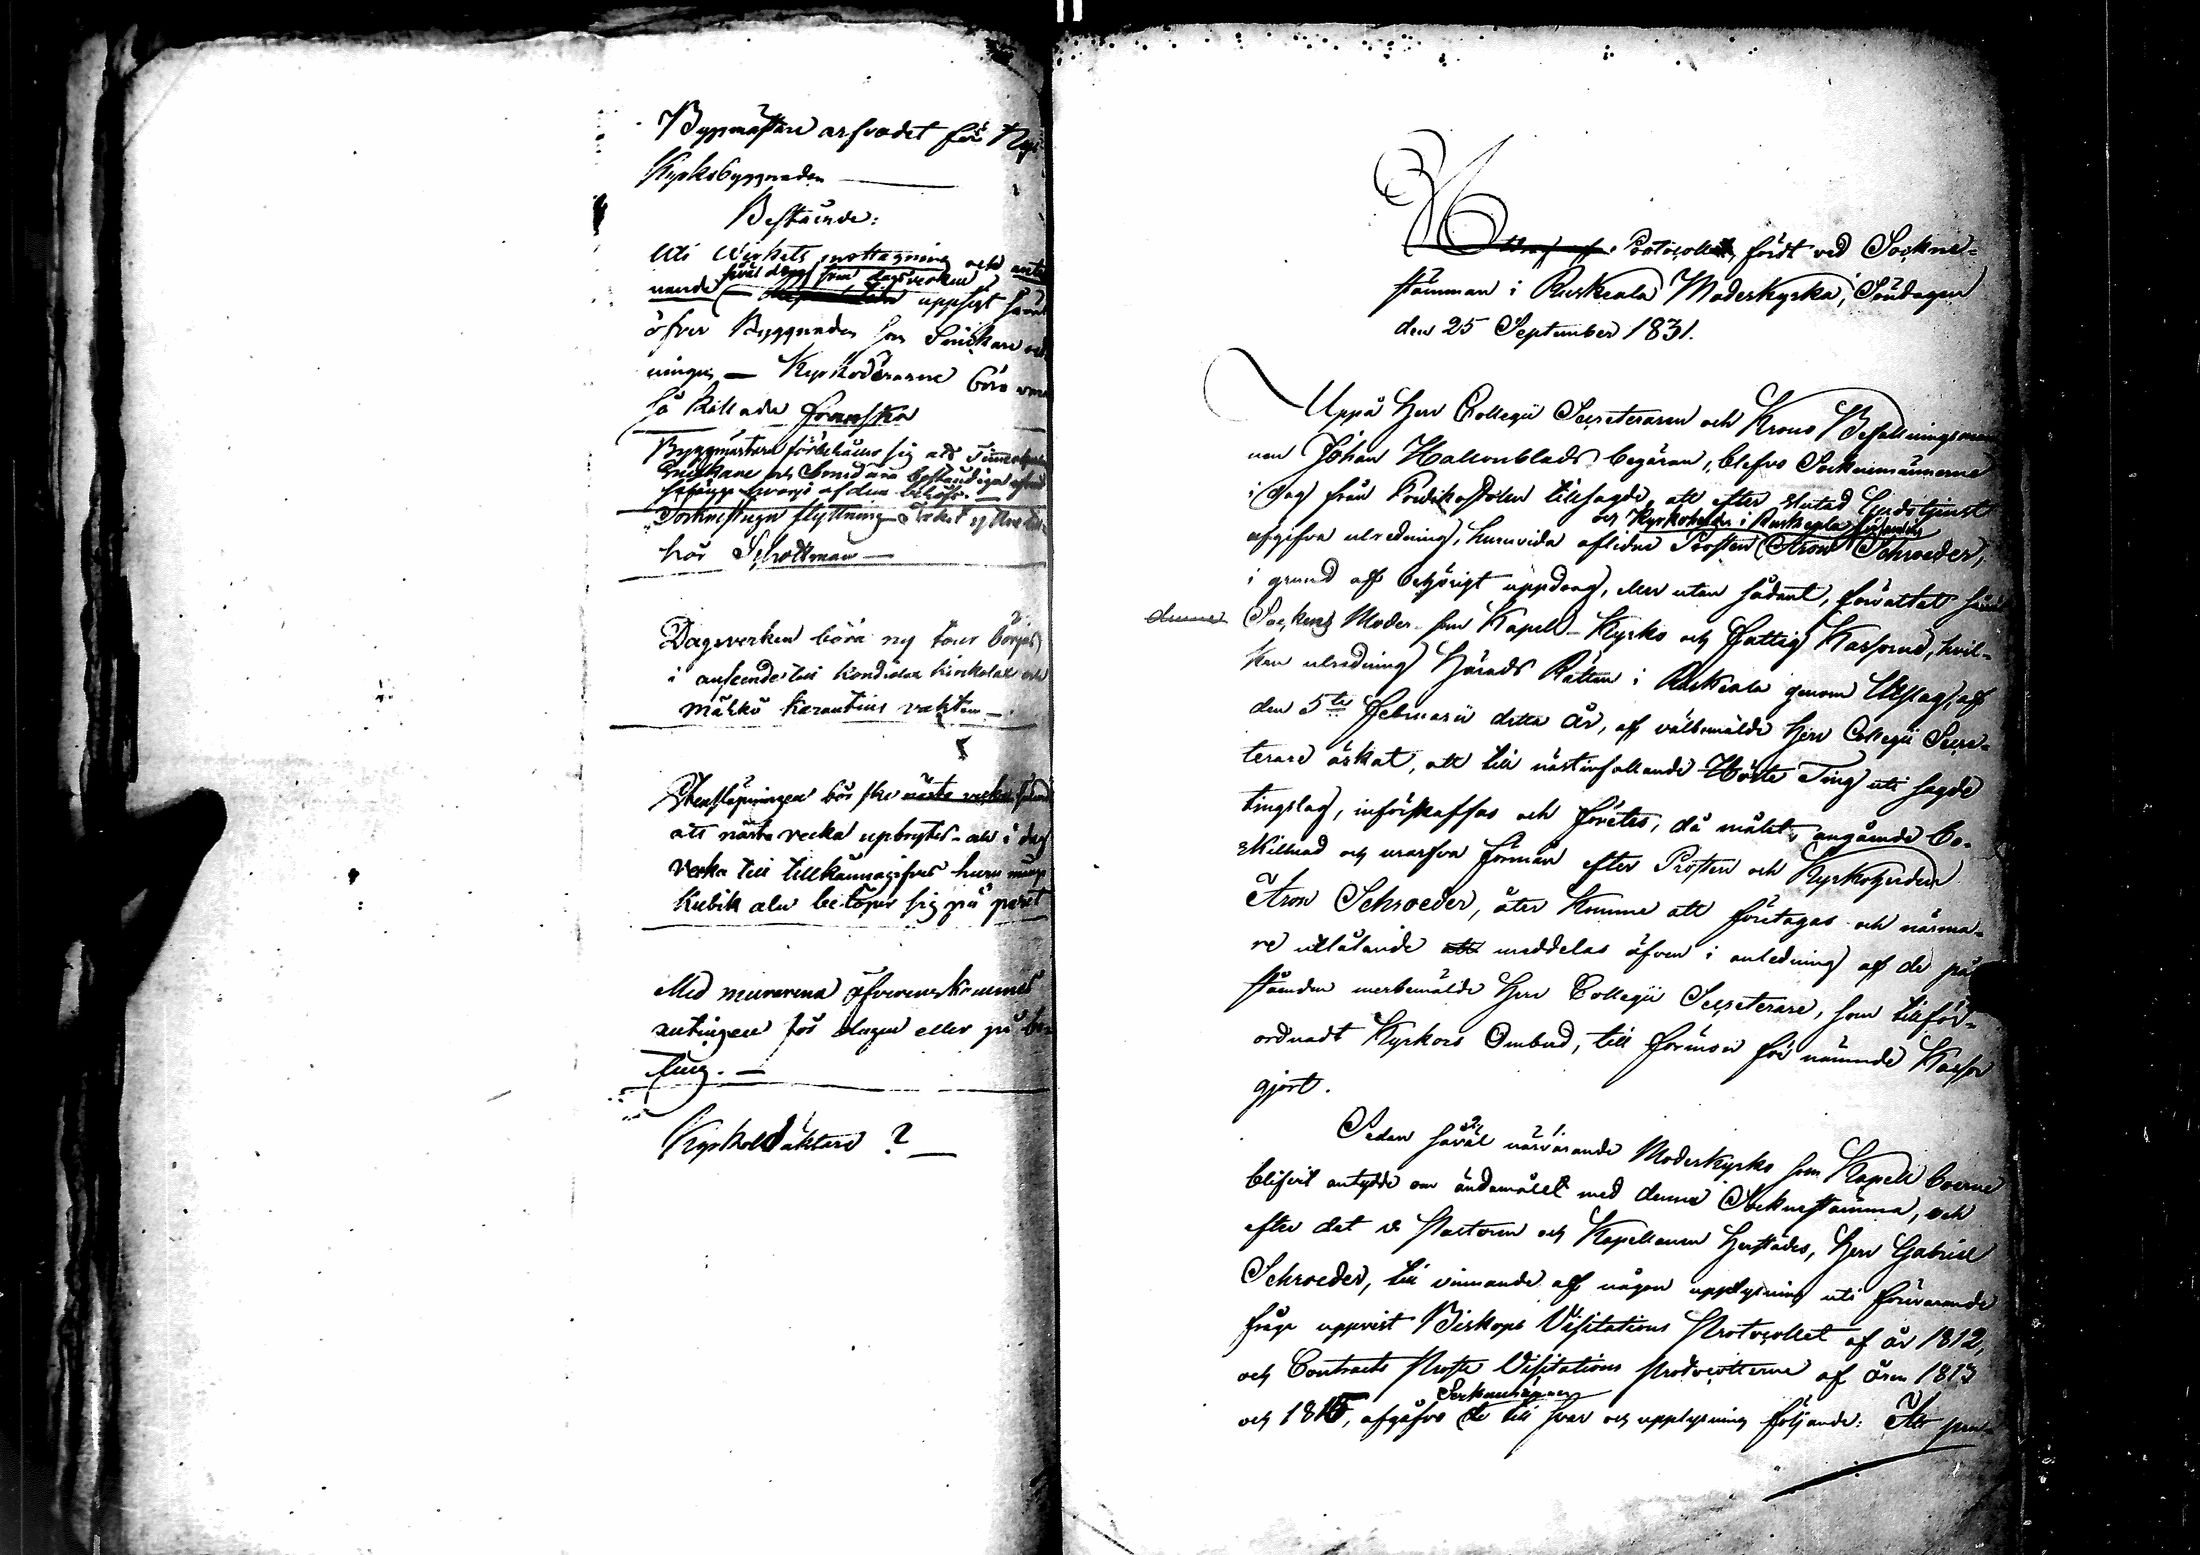 Byggmästare arfvodet för Nya
Kyrkobyggnaden —
Bestående:
Uti Virkets mottagning och
nande såväl dragt som dagsverken
uppsigt
öfver Byggnaden som Snickare
ningen — Kyrkodörarne böra
så kallade franska
Byggmästaren förbehåller sig att
Snickare och Smed äro beständiga
af dem behöfs. —
Sockenstugu flyttning
hos Schottman —
Dagsverken böra ny tour börjas
i anseende till
karantins vakten —
Stensläpningen bör ske nästa vecka
att nästa vecka upbrytes
vecka till tillkännagifves huru många
kubik alnar belöper sig på paret
Med murarena öfverenskommes
antingen för dagen eller på be-
ting. —
Kyrkoväktare ? —
Protocollet, fördt vid Sockne-
stämman i Ruskeala Moderkyrka, Söndagen
den 25 September 1831.
Uppå Herr Collegii Secreteraren och Krono Befallningsman-
nen Johan Hallonblads begäran, blefvo Sockenmännerne
i dag från Predikostolen tillsagde, att efter slutad Gudstjenst
och Kyrkoherden i Ruskeala
afgifva utredning, huruvida aflidne Prosten Aron Schroeder,
i grund af behörigt uppdrag, eller utan sådant, förvaltat
denna Sockens Moder som Kapell-Kyrko och Fattig Kassorne, hvil-
ken utredning Härads Rätten i Ruskeala genom Utslag, af
den 5te Februarii detta år, af välbemälde Herr Collegii Secre-
terare äskat, att till nästinfallande Höste Ting uti sagde
tingslag, införskaffas och företes, då målet, angående bo-
skillnad och urarfva förmån efter Prosten och Kyrkoherden
Aron Schroeder, åter komme att företagas och närma-
re utlåtande att meddelas äfven i anledning af de på-
stånden merbemälde Herr Collegii Secreterare, som tillför-
ordnadt Kyrkoes Ombud, till förmån för nämnde Kassor
gjort.
Sedan såväl närvarande Moderkyrko som Kapell boerne
blifvit antydde om ändamålet med denna Sockenstämma, och
efter det v. Pastoren och Kapellanen herstädes, Herr Gabriel
Schroeder, till vinnande af någon upplysning uti förevarande
fråga uppvist Biskops Visitations Protocollet af år 1812,
och Contracts Prosts Visitations Protocollerne af åren 1813
Sockenmännen
och 1815, afgåfvo de till svar och upplysning följande: Att